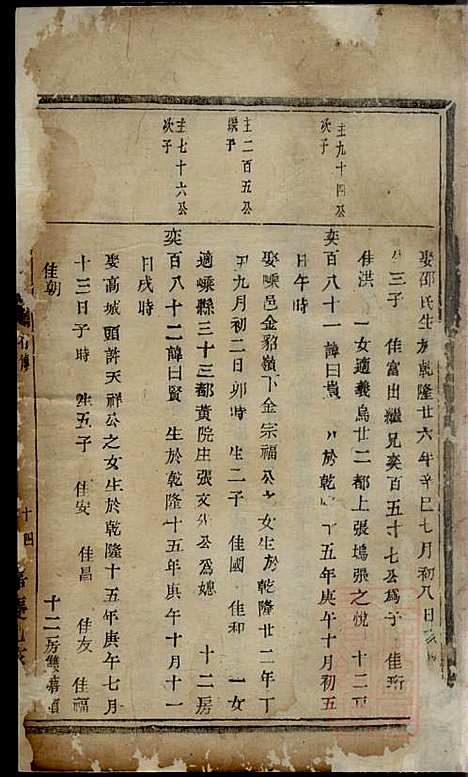 主九十四公
次子
主二百五公
主七十六公
次子
娶邵氏生於乾隆廿六年辛巳七月初八日
三子 佳富出繼兄奕百五十七公爲子 佳珩
佳洪 一女適義烏廿二都上張塢張之悅 十二
奕百八十一諱曰 於乾 十五年庚午十月初五
日午時
娶嵊邑金貂嶺下金宗福公之女生於乾隆廿二年丁
丑九月初二日卯時 生二子 佳國 佳和 一女
適嵊縣三十三都黃院庄張文 公爲媳 十二房
奕百八十二諱曰賢 生於乾隆十五年庚午十月十一
日戌時
娶高城頭許天祥公之女生於乾隆十五年庚午七月
十三日子時 生五子 佳安 佳昌 佳友 佳福
佳朝 十二房
十四